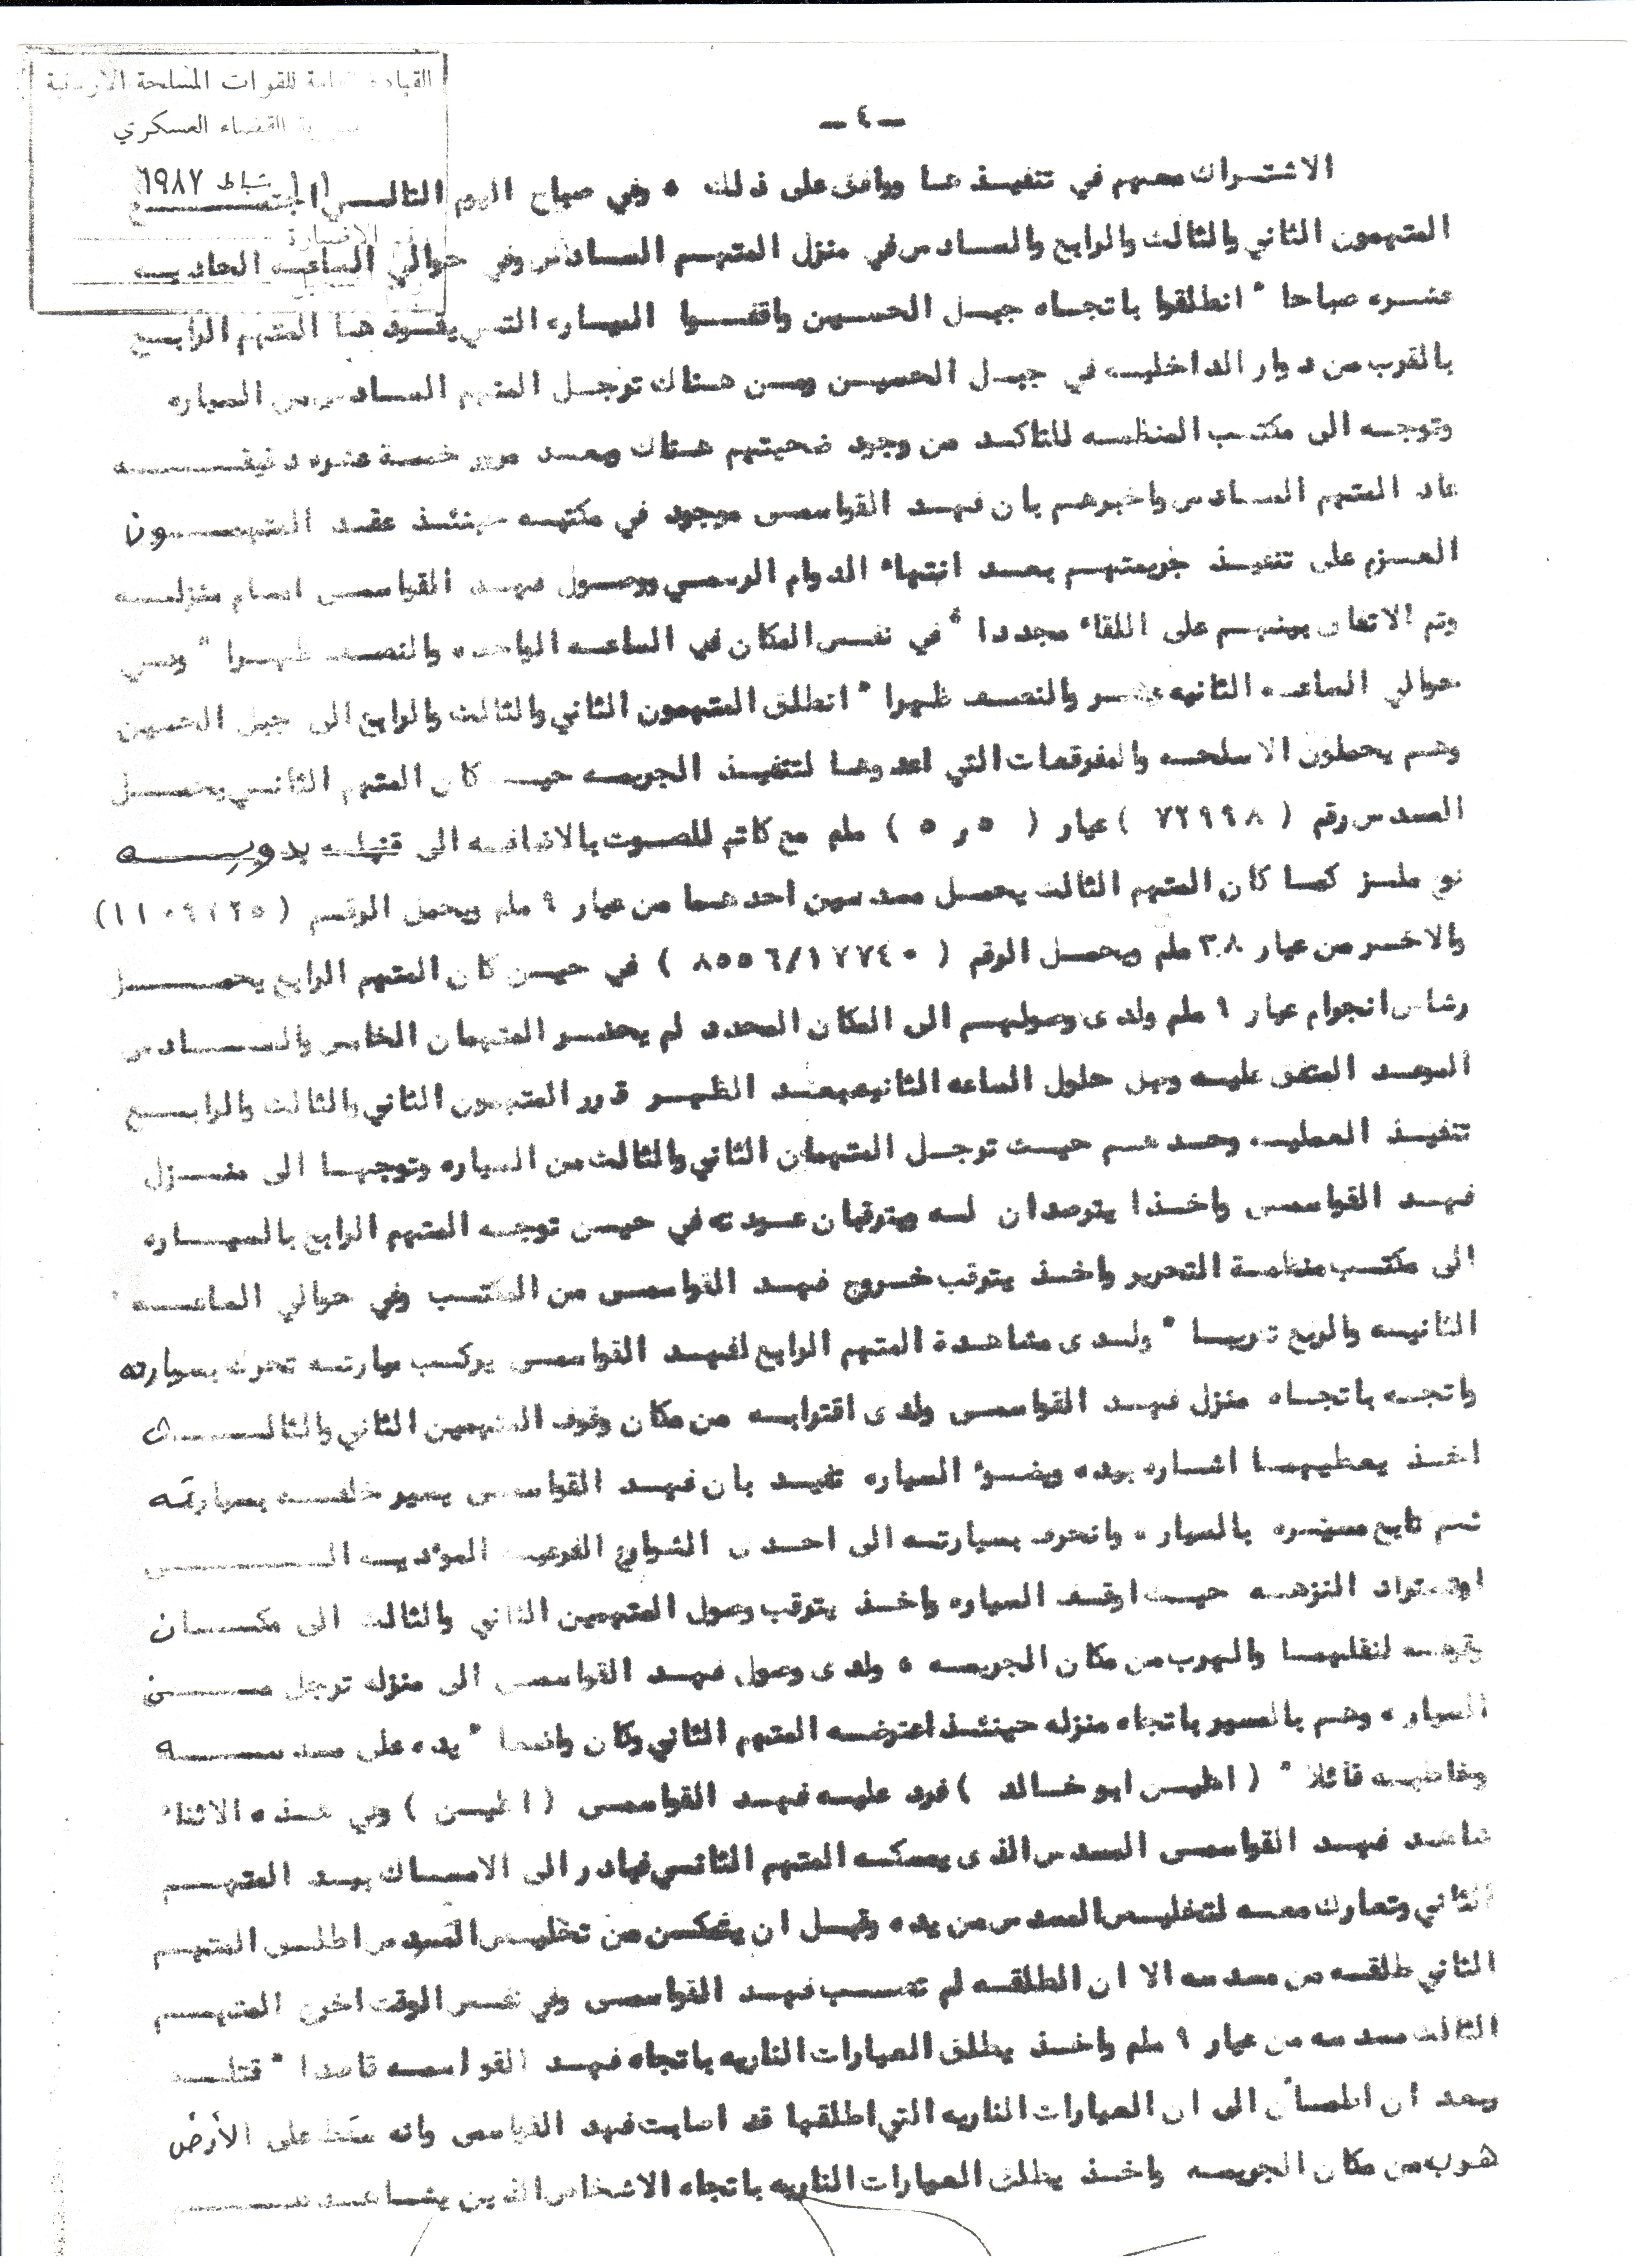 القيادة العامة للقوات المسلحة الاردنية
القضاء العسكري
١١ شباط ١٩٨٧
الاضبارة
ـ ٤ ـ
الاشتراك معهم في تنفيذها ووافق على ذلك ٠ وفي صباح اليوم التالي اجتمع
المتهمون الثاني والثالث والرابع والسادس في منزل المتهم السادس وفي حوالي الساعه الحاديه
عشره صباحا " انطلقوا باتجاه جبل الحسين واقفوا السياره التي يقودها المتهم الرابع
بالقرب من دوار الداخليه في جبل الحسين ومن هناك ترجل المتهم السادس من السياره
وتوجه الى مكتب المنظمه للتاكد من وجود ضحيتهم هناك وبعد مرور خمسة عشره دقيقه
عاد المتهم السادس واخبرهم بان فهد القواسمى موجود في مكتبه حينئذ عقد المتهمون
العزم على تنفيذ جريمتهم بعد انتهاء الدوام الرسمي ووصول فهد القواسمى امام منزله
وتم الاتفاق بينهم على اللقاء مجددا " في نفس المكان في الساعه الواحده والنصف ظهرا " وفي
حوالي الساعه الثانيه عشر والنصف ظهرا " انطلق المتهمون الثاني والثالث والرابع الى جبل الحسين
وهم يحملون الاسلحه والمفرقعات التي اعدوها لتنفيذ الجريمه حيث كان المتهم الثاني يحمل
المسدس رقم ( ٧٢٩٩٨ ) عيار ( ٥ر٥ ) ملم مع كاتم للصوت بالاضافه الى قنبله يدويه
نوع ملز كما كان المتهم الثالث يحمل مسدسين احدهما من عيار ٩ ملم ويحمل الرقم
والاخر من عيار ٣٨ ملم ويحمل الرقم ( ٨٥٥٦/١٧٧٤٠ ) في حين كان المتهم الرابع يحمل
رشاش انجرام عيار ٩ ملم ولدى وصولهم الى المكان المحدد لم يحضر المتهمان الخامس والسادس
الموعد المتفق عليه وقبل حلول الساعه الثانيه بعد الظهر قرر المتهمون الثاني والثالث والرابع
تنفيذ العمليه وحدهم حيث ترجل المتهمان الثاني والثالث من السياره وتوجها الى منزل
فهد القواسمى واخذا يترصدان له ويترقبان عودته في حين توجه المتهم الرابع بالسياره
الى مكتب منظمة التحرير واخذ يترقب خروج فهد القواسمى من المكتب وفي حوالي الساعه
الثانيه والربع تقريبا " ولدى مشاهدة المتهم الرابع لفهد القواسمى يركب سيارته تحرك بسيارته
واتجه باتجاه منزل فهد القواسمى ولدى اقترابه من مكان وقوف المتهمين الثاني والثالث
اخذ يعطيهما اشاره بيده وبضوء السياره تفيد بان فهد القواسمى يسير خلفه بسيارته
ثم تابع مسيره بالسياره وانحرف بسيارته الى احدى الشوارع الفرعيه المؤديه الى
اوتستراد النزهه حيث اوقف السياره واخذ يترقب وصول المتهمين الثاني والثالث الى مكان
وقوفه لنقلهما والهرب من مكان الجريمه ٠ ولدى وصول فهد القواسمى الى منزله ترجل من
السياره وهم بالسير باتجاه منزله حينئذ اعترضه المتهم الثاني وكان واضعا " يده على مسدسه
وخاطبه قائلا " ( اطلس ابو خالد ) فرد عليه فهد القواسمى ( اطلس ) وفي هذه الاثناء
شاهد فهد القواسمى المسدس الذي يمسكه المتهم الثاني فبادر الى الامساك بيد المتهم
الثاني وتعارك معه لتخليص المسدس من يده وقبل ان يتمكن من تخليص المسدس اطلق المتهم
الثاني طلقه من مسدسه الا ان الطلقه لم تصب فهد القواسمى وفي نفس الوقت اخرج المتهم
الثالث مسدسه من عيار ٩ ملم واخذ يطلق العيارات الناريه باتجاه فهد القواسمه قاصدا " قتله
وبعد ان اطمأن الى ان العيارات الناريه التي اطلقها قد اصابت فهد القواسمى وانه سقط على الأرض
هرب من مكان الجريمه واخذ يطلق العيارات الناريه باتجاه الاشخاص الذين